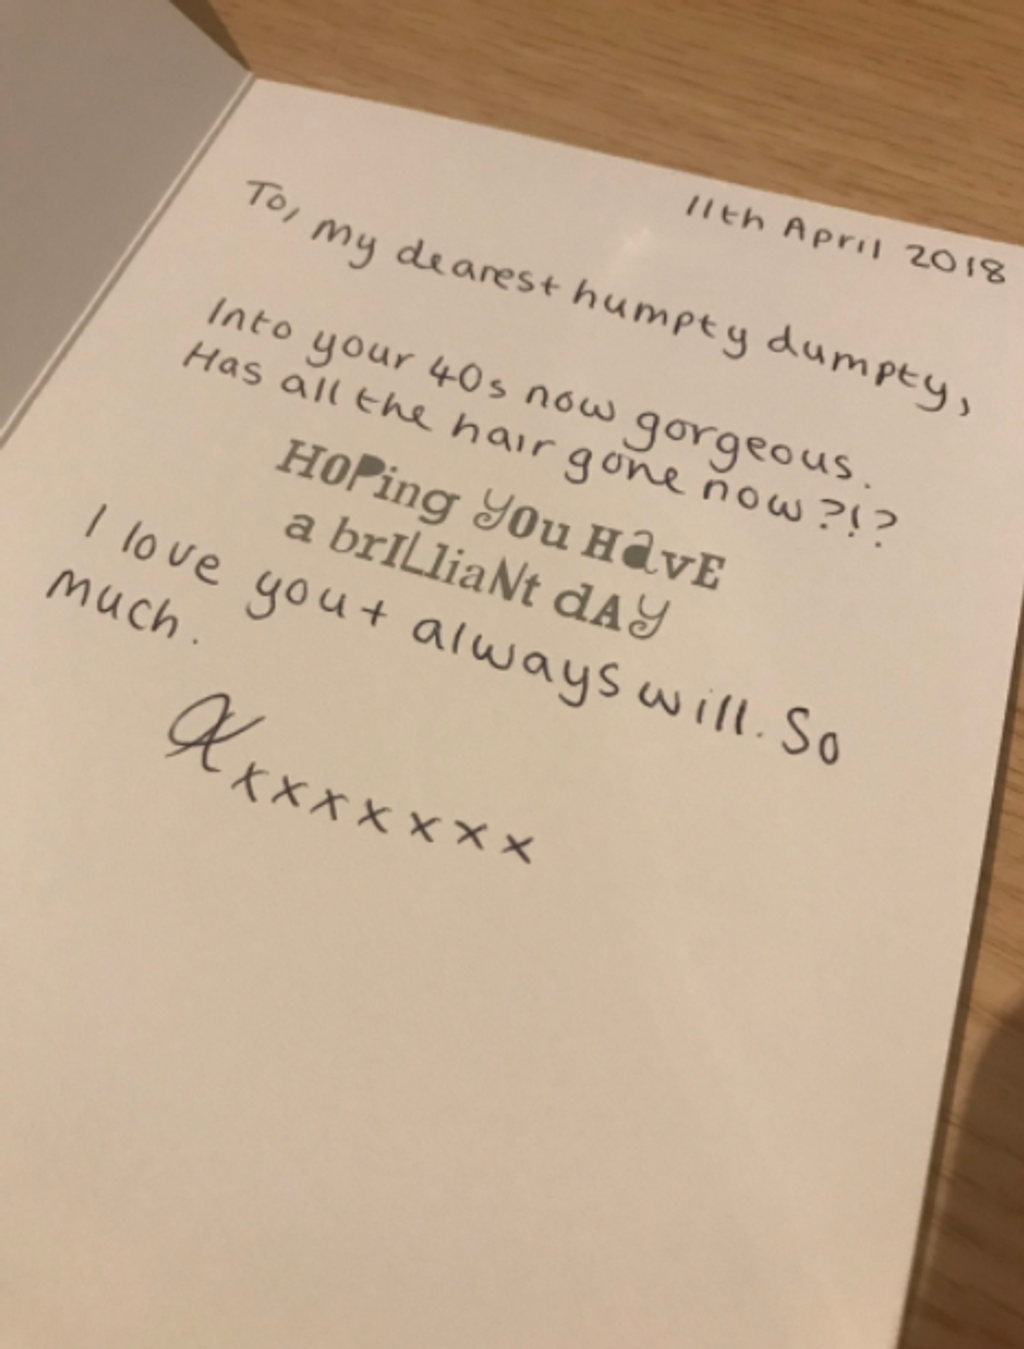 11th April 2018
To, my dearest humpty dumpty,
Into your 40s now gorgeous.
Has all the hair gone now?!?
HoPing yOu HavE
a brILliaNt dAy
I love you + always will. So
much.
xxxxxxx